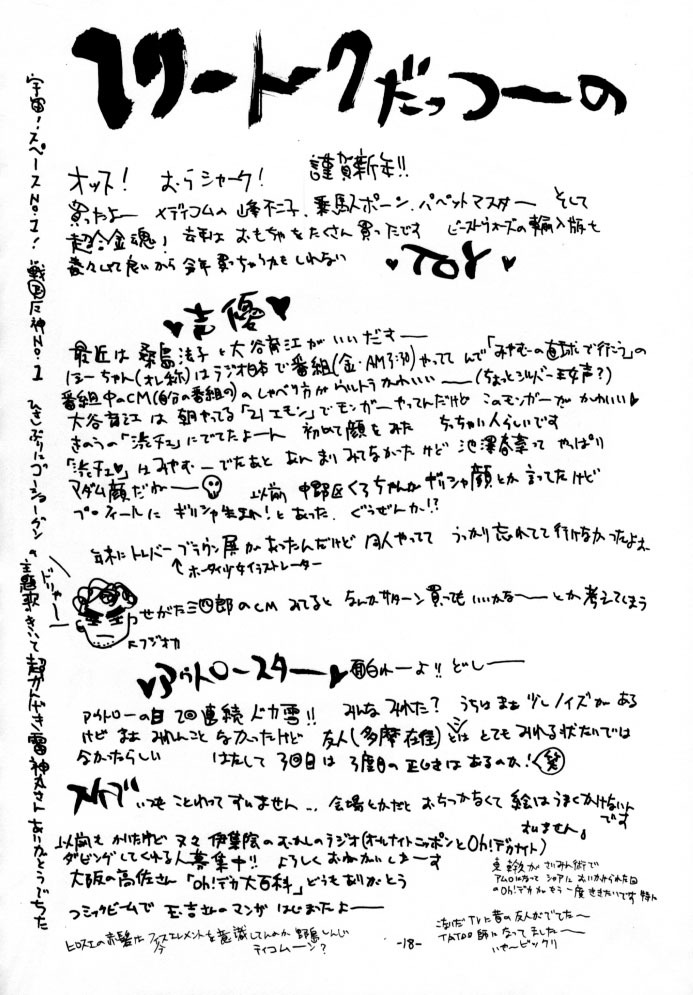 フリートークだっつーの
オッス! むらシャーク! 謹賀新年!!
買ったよー メディコムの峰不二子、乗馬スポーン、パペットマスター そして
超合金魂! 去年は おもちゃをたくさん買ったです ビーストウォーズの輸入版も
着々して良いから今年買っちゃうかもしれない ♥TOY♥
♥声優♥
最近は 桑島法子と大谷育江がいいだすー
ほーちゃん(オレ称)はラジオ日本で番組(金・AM3:30)やってんで「みやむーの直球で行こう」の
番組中のCM(自分の番組の)のしゃべり方がウルトラかわいいー(ちょっとシルバー王女声?)
大谷育江は 朝やってる「21エモン」でモンガーやってんだけど このモンガーがかわいい♥
きのうの「渋チェ」にでてたよーん 初めて顔をみた ちっちゃい人らしいです
「渋チェ♥」はみやむーでたあと あんまりみてなかったけど 池澤春菜って やっぱり
マダム顔だがー 以前 中野区くろちゃんが ギリシャ顔とか言ってたけど
プロフィールに ギリシャ生まれ!とあった ぐうぜんか!?
年末にトレバー・ブラウン展があったんだけど 同人やってて うっかり忘れてて行けなかったよォ
↑ホータイ少女イラストレーター
ドリャー
せがた三四郎のCM みてると なんかサターン買ってもいいかなー とか考えてしまう
フジオカ
♥アウトロースター♥ 面白れーよ!! どしー
アウトローの日 2回連続ドカ雪!! みんなみれた? うちはまぁ少しノイズがある
けど まぁ みれんことなかったけど 友人(多摩在住)とはとてもみれる状たいでは
なかったらしい はたして 3回目は 3度目の正じきはあるのか! 笑
スケブ いつもことわってすいません… 会場とかだと おちつかなくて絵はうまくかけないんです
すいません。
以前もかいたけど 又々 伊集院のむかしのラジオ(オールナイトニッポンとOh!デカナイト)
ダビングしてくれる人募集中!! よろしくおねがいしまーす
大阪の高佐さん「Oh!デカ大百科」どうもありがとう
アムロになって シャアにおいかけられた回
のOh!デカがもう一度ききたいです 特に
コミックビームで 玉吉さんのマンガ はじまったよー
こないだTVに昔の友人がでてた〜
TATOO師になってました〜
いやービックリ
ヒロスエの赤髪はフィフスエレメントを意識してんのか 野島しんじ
ティコムーン?
-18-
宇宙!スペースNo.1! 戦国魔神No.1 ひさしぶりにゴーショーグンの主題歌きいて超かんげき 雷神丸さんありがとうでちた